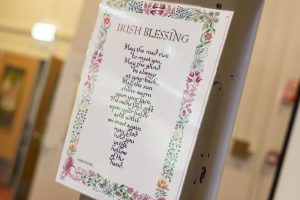 IRISH BLESSING
May the road rise
to meet you,
May the wind
be always
at your back,
May the sun
shine warm
upon your face,
The rains fall soft
upon your fields
and until
we meet again
may God
hold you
in the
hollow
of His
hand.